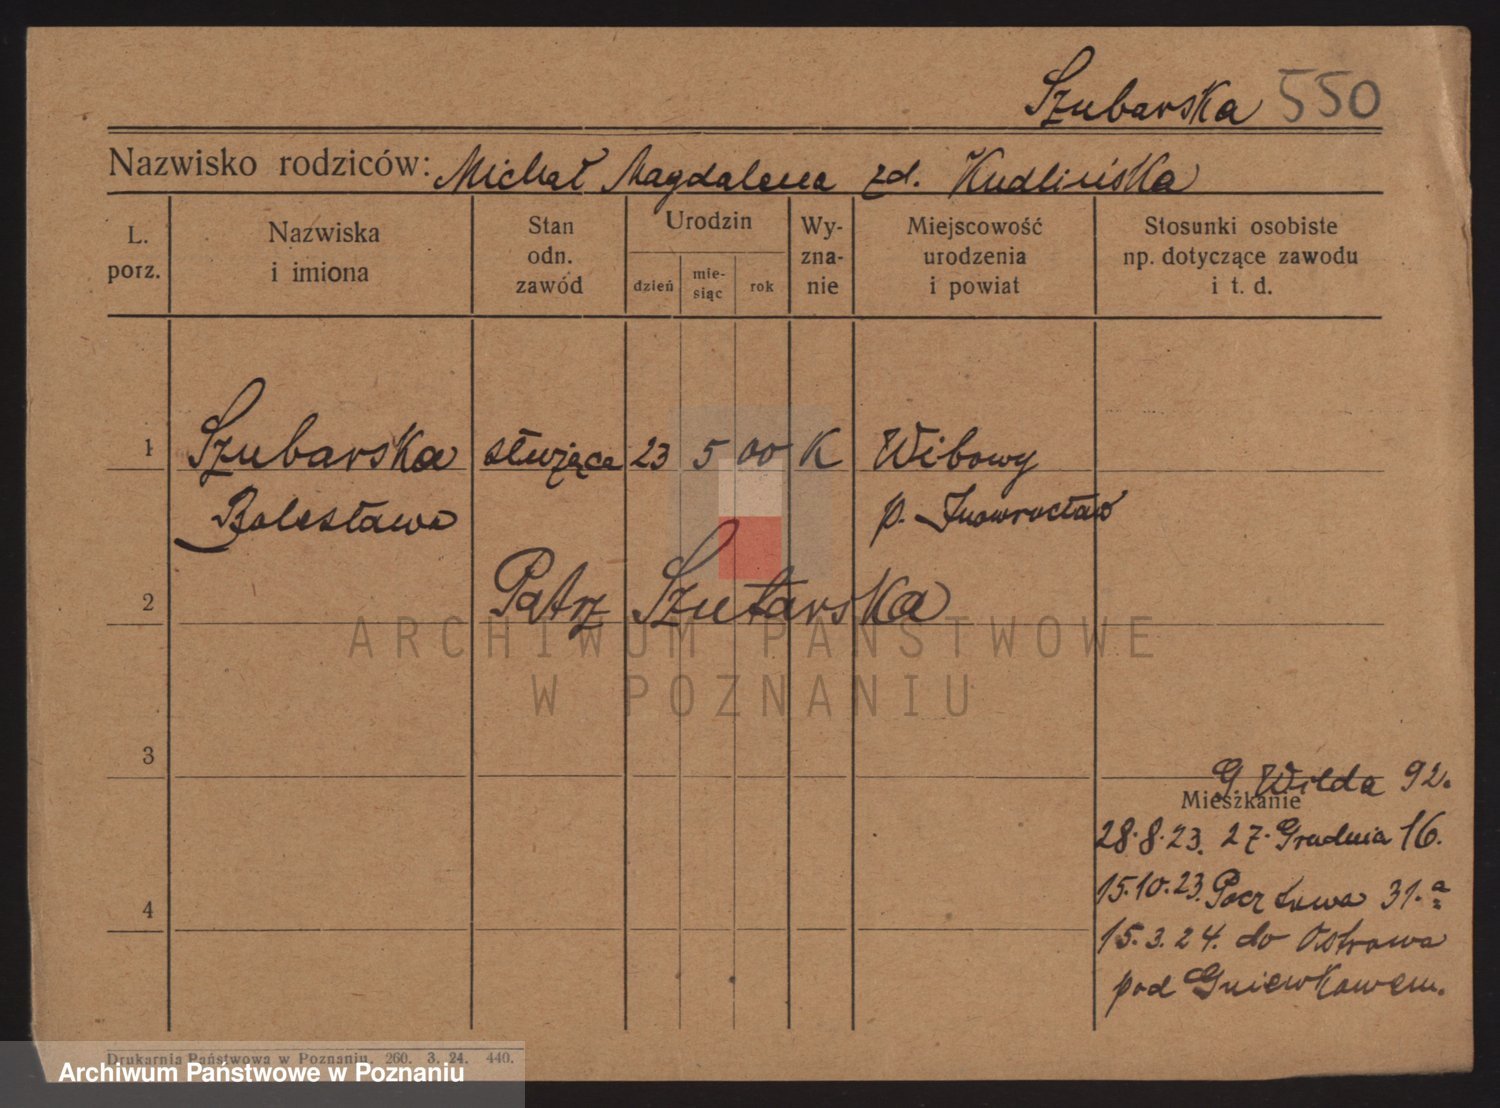 Szubarska 550
Nazwisko rodziców: Michał Magdalena zd. Kudlińska
L. porz.
Nazwiska i imiona
Stan odn. zawód
Urodzin
dzień
mie-siąc
rok
Wy-zna-nie
Miejscowość urodzenia i powiat
Stosunki osobiste np. dotyczące zawodu i t. d.
1 Szubarska służąca 23 5 00 K Wibowy
Bolesława p. Inowrocław
2 Patrz Szutarska
ARCHIWUM PAŃSTWOWE
W POZNANIU
3
G. Wilda 92.
Mieszkanie
28.8.23. 27. Grudnia 16.
15.10.23. Pocztowa 31.a
4
15.3.24. do Ostrowa
pod Gniewkowem.
Drukarnia Państwowa w Poznaniu. 260. 3. 24. 440.
Archiwum Państwowe w Poznaniu